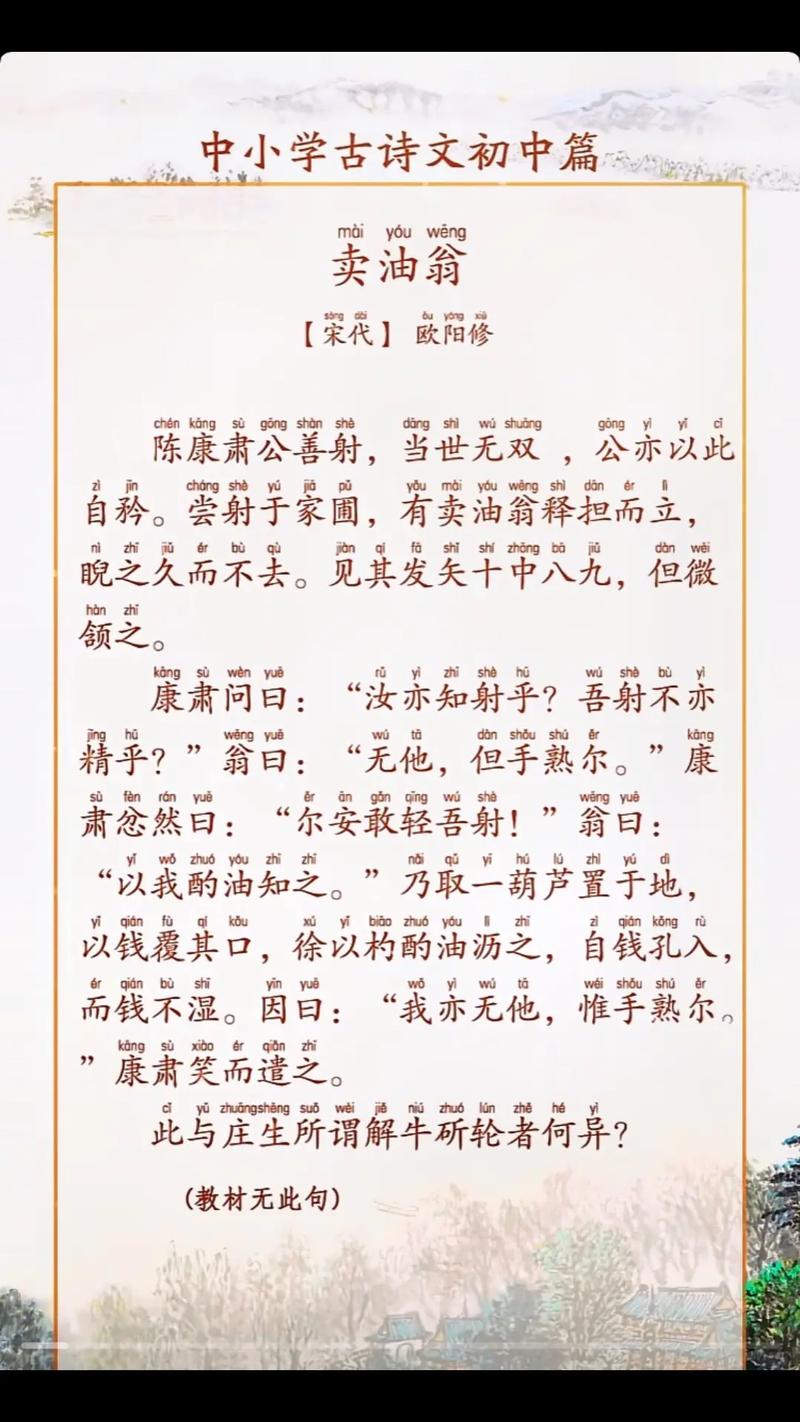 中小学古诗文初中篇
mài yóu wēng
卖油翁
sòng dài ōu yáng xiū
【宋代】 欧阳修
chén kāng sù gōng shàn shè dāng shì wú shuāng gōng yì yǐ cǐ
陈康肃公善射，当世无双 ，公亦以此
zì jīn cháng shè yú jiā pǔ yǒu mài yóu wēng shì dān ér lì
自矜。尝射于家圃，有卖油翁释担而立，
nì zhī jiǔ ér bù qù jiàn qí fā shǐ shí zhòng bā jiǔ dàn wēi
睨之久而不去。见其发矢十中八九，但微
hàn zhī
颔之。
kāng sù wèn yuē rǔ yì zhī shè hū wú shè bù yì
康肃问曰：“汝亦知射乎？吾射不亦
jīng hū wēng yuē wú tā dàn shǒu shú ěr kāng
精乎？”翁曰：“无他，但手熟尔。”康
sù fèn rán yuē ěr ān gǎn qīng wú shè wēng yuē
肃忿然曰：“尔安敢轻吾射！”翁曰：
yǐ wǒ zhuó yóu zhī zhī nǎi qǔ yī hú lú zhì yú dì
“以我酌油知之。”乃取一葫芦置于地，
yǐ qián fù qí kǒu xú yǐ biāo zhuó yóu lì zhī zì qián kǒng rù
以钱覆其口，徐以杓酌油沥之，自钱孔入，
ér qián bù shī yīn yuē wǒ yì wú tā wéi shǒu shú ěr
而钱不湿。因曰：“我亦无他，惟手熟尔。
kāng sù xiào ér qiǎn zhī
”康肃笑而遣之。
cǐ yǔ zhuāngshēng suǒ wèi jiě niú zhuó lún zhě hé yì
此与庄生所谓解牛斫轮者何异？
（教材无此句）